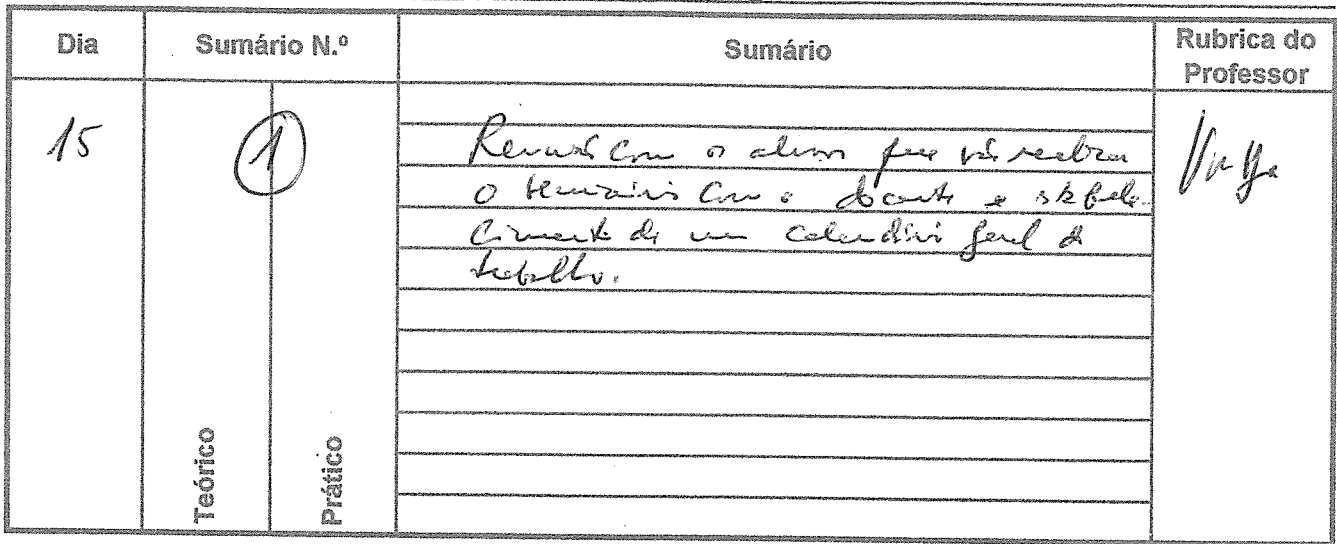 Dia
Sumário N.º
Sumário
Rubrica do
Professor
15
1
Reunião com os alunos que vão realizar
o seminário com o docente e estabele-
cimento de um calendário geral de
trabalho.
Teórico
Prático